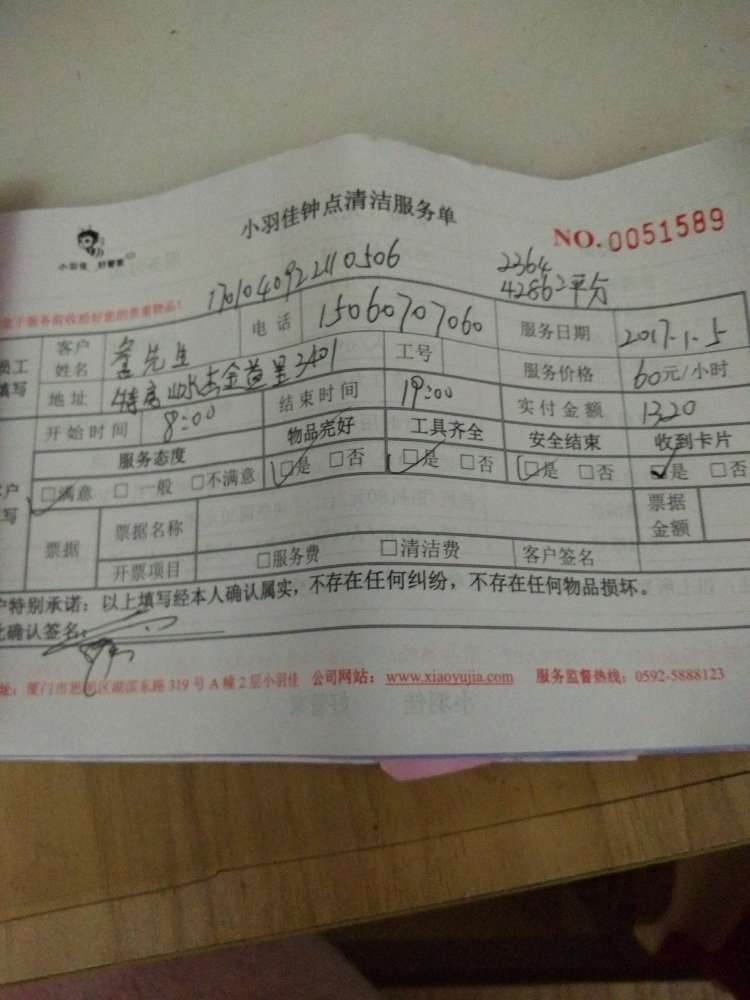 小羽佳钟点清洁服务单
NO.0051589
小羽佳 好管家
17010409221 10506
2364
42862平分
于服务前收拾好您的贵重物品!
员工 填写 客户姓名 詹先生 电话 15060707060 服务日期 2017.1.5
地址 3401 工号 服务价格 60元/小时
开始时间 8:00 结束时间 19:00 实付金额 1320
服务态度 物品完好 工具齐全 安全结束 收到卡片
□满意 □一般 □不满意 □是 □否 □是 □否 □是 □否 □是 □否
票据 票据名称 票据金额
开票项目 □服务费 □清洁费 客户签名
户特别承诺：以上填写经本人确认属实，不存在任何纠纷，不存在任何物品损坏。
此确认签名：
址：厦门市思明区湖滨东路319号A幢2层小羽佳 公司网站：www.xiaoyujia.com 服务监督热线：0592-5888123